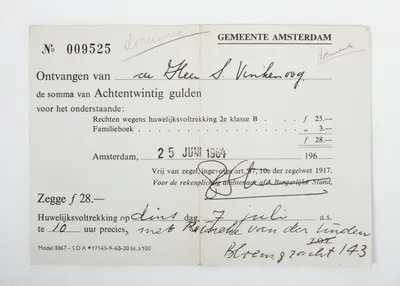 GEMEENTE AMSTERDAM
№ 009525
Ontvangen van de Heer S. Vinkenoog
de somma van Achtentwintig gulden
voor het onderstaande:
Rechten wegens huwelijksvoltrekking 2e klasse B . . . f 25.—
Familieboek . . . . . . . . . . . . . . . . „ 3.—
f 28.—
Amsterdam, 25 JUNI 1964 196
Vrij van zegel ingevolge art. 37, 10e der zegelwet 1917.
Voor de rekenplichtig ambtenaar afd. Burgerlijke Stand,
Zegge f 28.—
Huwelijksvoltrekking op dinsdag, 7 juli a.s.
te 10 uur precies, met Reineke van der Linden
Bloemgracht 143
Model 8867 - SDA * 17143-9-63-20 bl. à 100